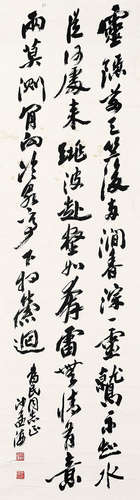 靈隱前天竺後兩澗春淙一靈鷲不知水
從何處來跳波赴壑如奔雷無情有意
兩莫測肯向冷泉亭下相縈迴
民同志正
沙孟海